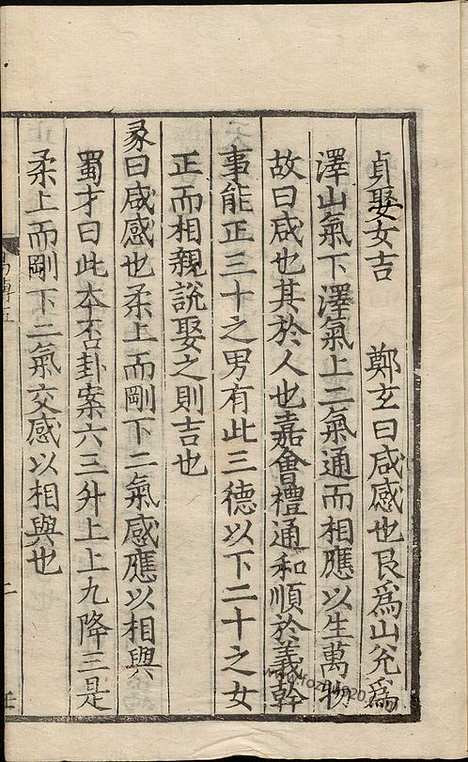 貞娶女吉　鄭玄曰咸感也艮爲山兊爲
澤山氣下澤氣上二氣通而相應以生萬物
故曰咸也其於人也嘉會禮通和順於義幹
事能正三十之男有此三德以下二十之女
正而相親說娶之則吉也
彖曰咸感也柔上而剛下二氣感應以相與
蜀才曰此本否卦案六三升上上九降三是
柔上而剛下二氣交感以相與也
易傳五
二